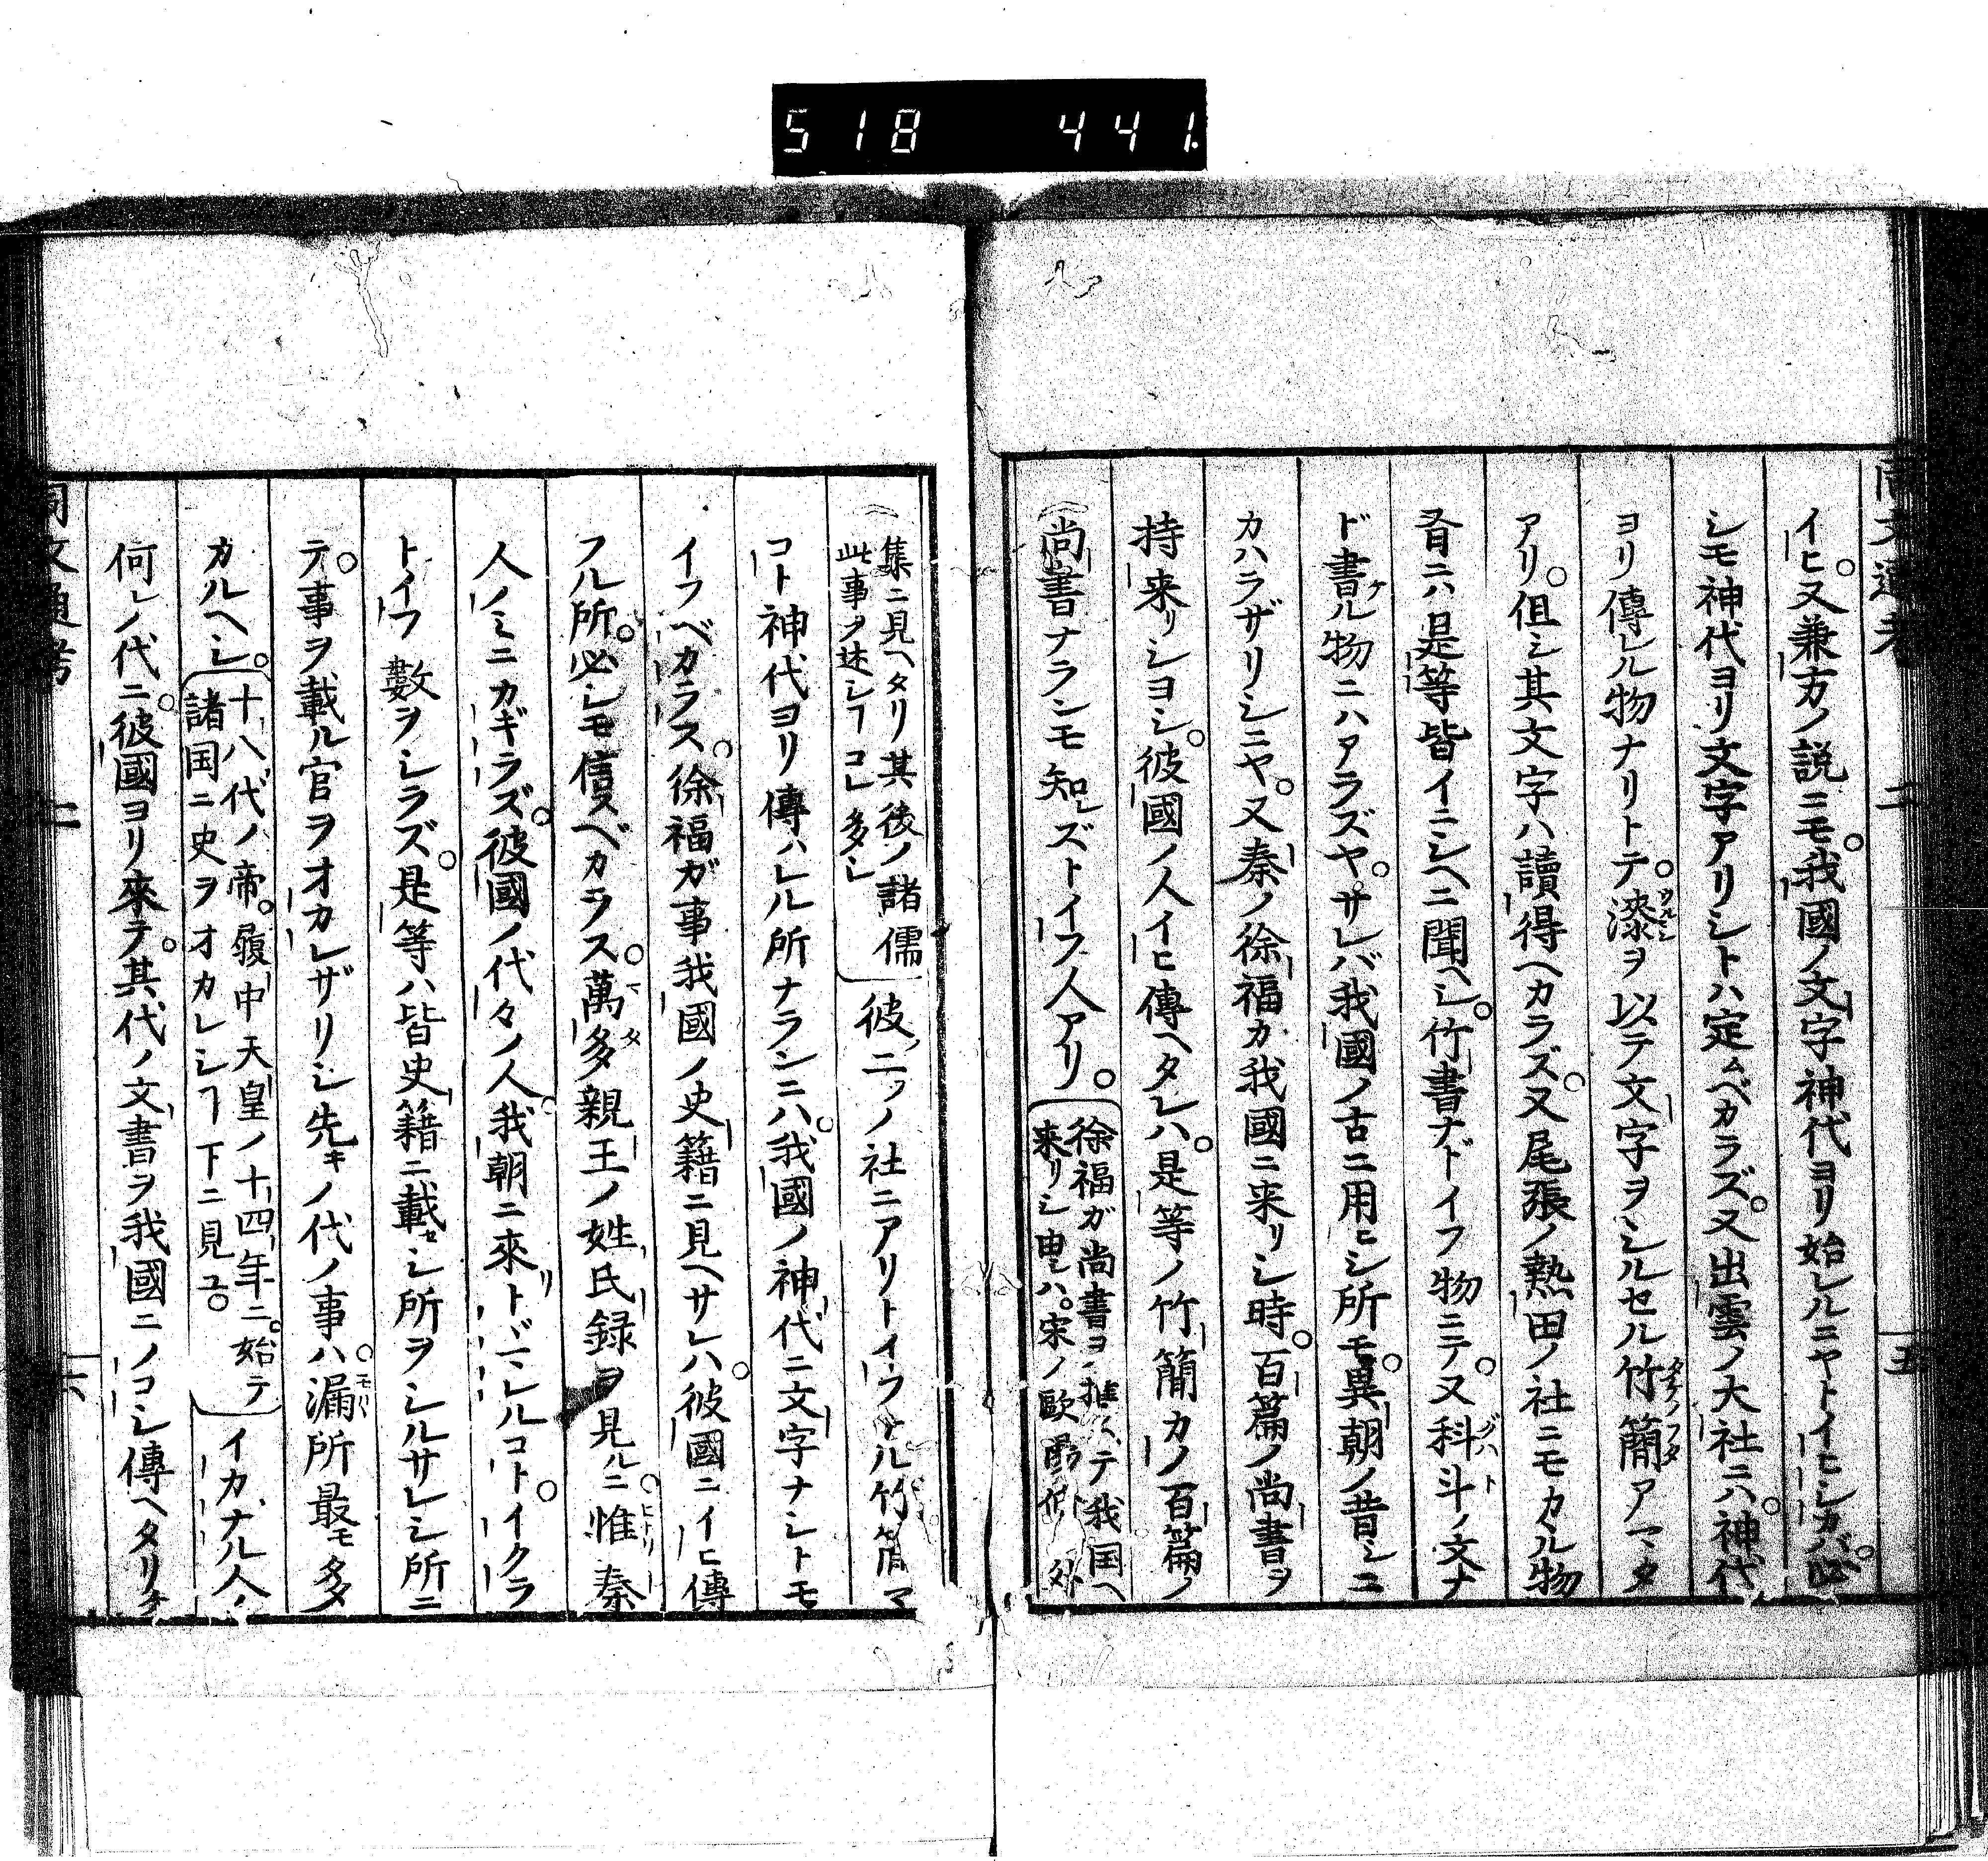 518 441.
同文通考 二 五
イヒ。又兼方ノ説ニモ。我國ノ文字神代ヨリ始レルニヤトイヒシカバ。必
シモ神代ヨリ文字アリシトハ定ムベカラズ。又出雲ノ大社ニハ。神代
ヨリ傳レル物ナリトテ。漆ヲ以テ文字ヲシルセル竹簡アマタ
アリ。但シ其文字ハ讀得ヘカラズ。又尾張ノ熱田ノ社ニモカヽル物
有ニハ是等皆イニシヘニ聞ヘシ。竹書ナドイフ物ニテ。又科斗ノ文ナ
ド書ケル物ニハアラズヤ。サレバ我國ノ古ニ用ヒシ所モ。異朝ノ昔シニ
カハラザリシニヤ。又秦ノ徐福カ我國ニ来リシ時。百篇ノ尚書ヲ
持来リシヨシ。彼國ノ人イヒ傳ヘタレハ。是等ノ竹簡カノ百篇ノ
尚書ナランモ知レズトイフ人アリ。
徐福ガ尚書ヨ テ我国ヘ
来リシ由シハ。宋ノ歐
集ニ見ヘタリ其後ノ諸儒
此事ヲ述シヿコレ多シ
彼二ツノ社ニアリトイフナル竹簡マ
コト神代ヨリ傳ハレル所ナランニハ。我國ノ神代ニ文字ナシトモ
イフベカラス。徐福ガ事我國ノ史籍ニ見ヘサレハ。彼國ニイヒ傳
フル所。必シモ信スベカラス。萬多親王ノ姓氏録ヲ見ルニ。惟秦
人ノミニカギラズ。彼國ノ代々ノ人。我朝ニ來リトヾマレルコト。イクラ
トイフ數ヲシラズ。是等ハ皆史籍ニ載セシ所ヲシルサレシ所ニ
テ。事ヲ載ル官ヲオカレザリシ先キノ代ノ事ハ。漏所最モ多
カルヘシ。
十八代ノ帝。履中天皇ノ十四年ニ。始テ
諸国ニ史ヲオカレシヿ下ニ見ユ。
イカナル人ノ
何レノ代ニ。彼國ヨリ來テ。其代ノ文書ヲ我國ニノコシ傳ヘタリケ
同文通考 二 六